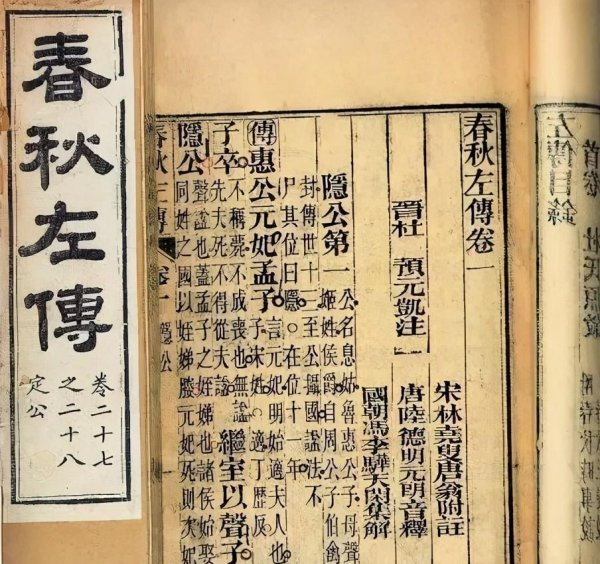 春秋左傳
卷二十七
之二十八
定公
左傳目錄
首卷
春秋左傳卷一
晉杜 預元凱注
宋林堯叟唐翁附註
唐陸德明元朗音釋
國朝馮李驊天閑集解
隱公第一
姬姓侯爵自周公子伯禽
公名息姑魯惠公子母聲
封傳世十三至公攝國諡法不
尸其位曰隱在位十一年
傳惠公元妃孟子
言元妃明始適夫人也
子宋姓適丁歷反
子卒
不稱薨不成喪也無諡
先夫死不得從夫諡
繼室以聲子
隱公
聲諡也蓋孟子之姪娣也諸侯始娶
同姓之國以姪娣媵元妃死則次妃
春秋左傳
卷一
隱公